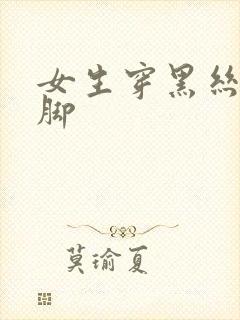 女生穿黑絲
脚
莫瑜夏